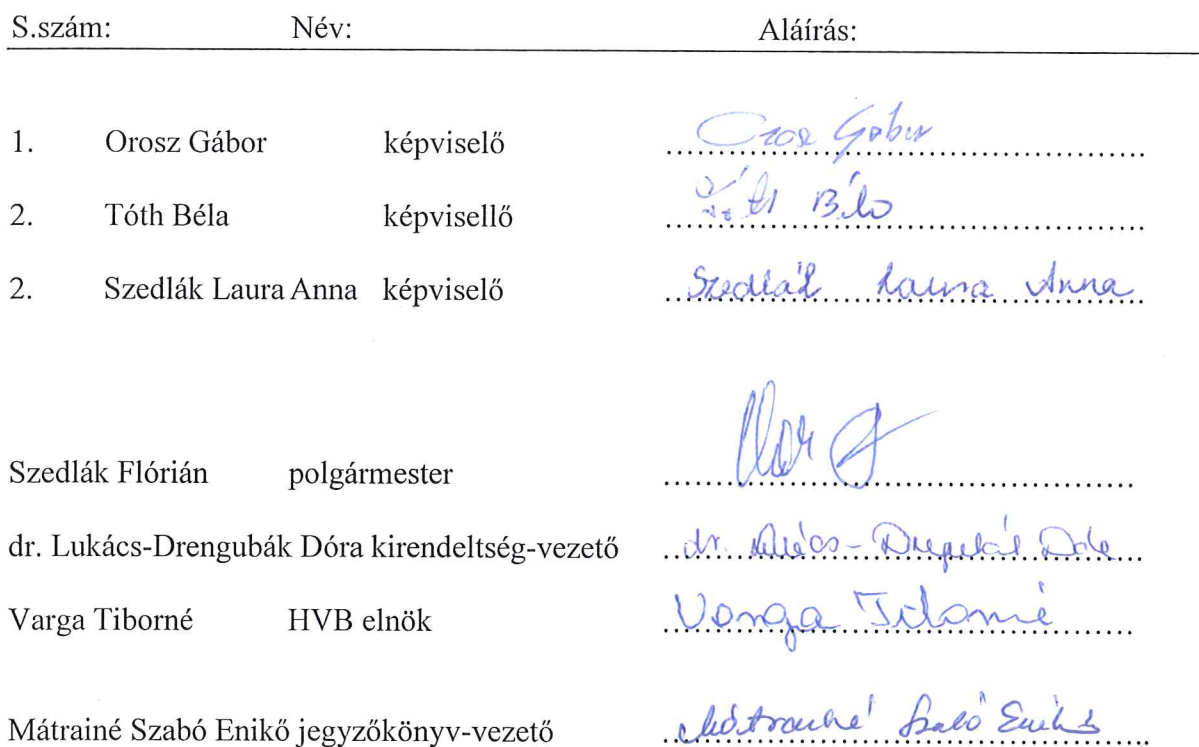 S.szám: Név: Aláírás:
1. Orosz Gábor képviselő Orosz Gábor
2. Tóth Béla képvisellő Tóth Béla
2. Szedlák Laura Anna képviselő Szedlák Laura Anna
Szedlák Flórián polgármester
dr. Lukács-Drengubák Dóra kirendeltség-vezető dr. Lukács-Drengubák Dóra
Varga Tiborné HVB elnök Varga Tiborné
Mátrainé Szabó Enikő jegyzőkönyv-vezető Mátrainé Szabó Enikő